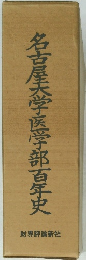 名古屋大学医学部百年史
財界評論新社